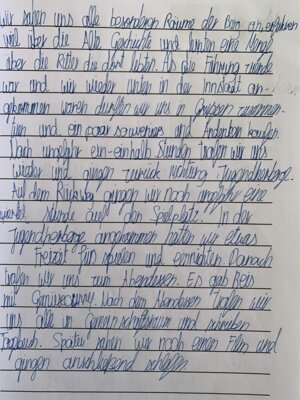 wir sahen uns alle besonderen Räume der Burg an, erfuhren
viel über die Alte Geschichte und lernten eine Menge
über die Ritter die dort lebten. Als die Führung zuende
war und wir wieder unten in der Innstadt an-
gekommen waren durften wir uns in Gruppen zusammen-
tun und ein paar souveniers und Andenken kaufen.
Nach ungefähr ein-einhalb Stunden trafen wir uns
wieder und gingen zurück richtung Jugendherberge.
Auf dem Rückweg gingen wir noch ungefähr eine
viertel stunde auf den Spielplatz. In der
Jugendherberge angekommen hatten wir etwas
Freizeit zum spielen und Danach
trafen wir uns zum Abendessen. Es gab Reis
mit Gemüsecurry. Nach dem Abendessen trafen wir
uns alle im Gemeinschaftsraum und schrieben
Tagebuch. Später sahen wir noch einen Film und
gingen anschließend schlafen